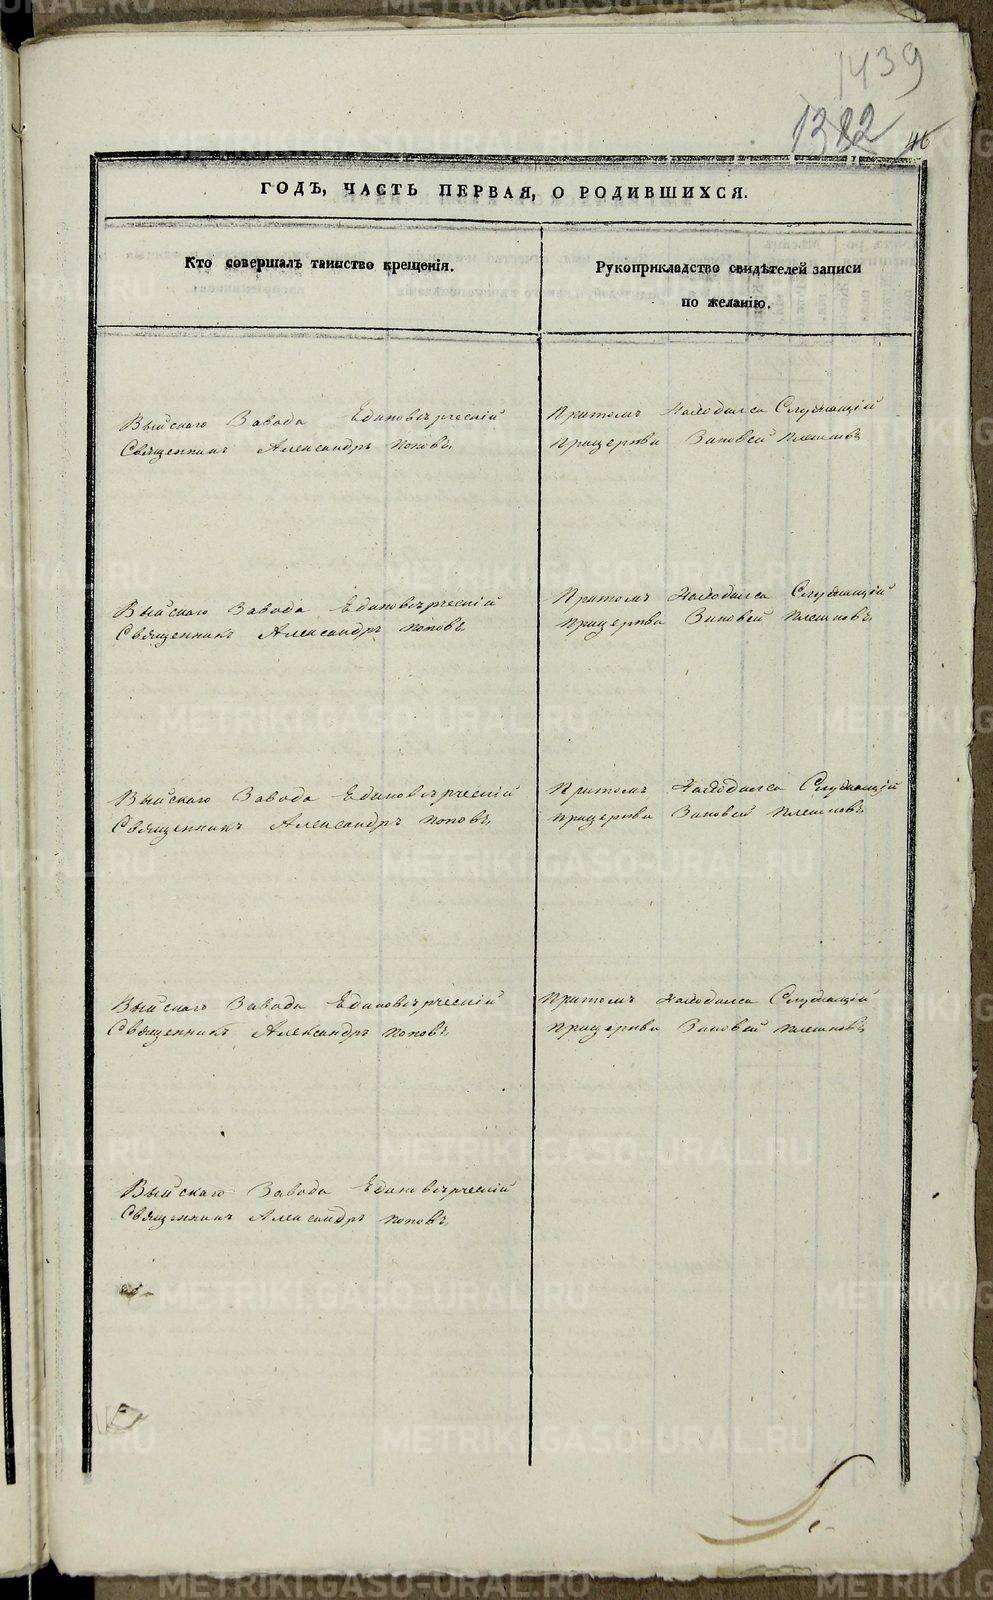 1439
1382
46
ГОДЪ, ЧАСТЬ ПЕРВАЯ, О РОДИВШИХСЯ.
Кто совершалъ таинство крещенія.
Рукоприкладство свидѣтелей записи
по желанію.
Выйскаго Завода Единовѣрческій
Священникъ Александръ Поповъ
Притомъ Находился Служащій
прицеркви Зиновей Плешковъ
Выйскаго Завода Единовѣрческій
Священникъ Александръ Поповъ
Притомъ Находился Служащій
прицеркви Зиновей Плешковъ
Выйскаго Завода Единовѣрческій
Священникъ Александръ Поповъ
Притомъ Находился Служащій
прицеркви Зиновей Плешковъ
Выйскаго Завода Единовѣрческій
Священникъ Александръ Поповъ
Притомъ Находился Служащій
прицеркви Зиновей Плешковъ
Выйскаго Завода Единовѣрческій
Священникъ Александръ Поповъ
METRIKI.GASO-URAL.RU